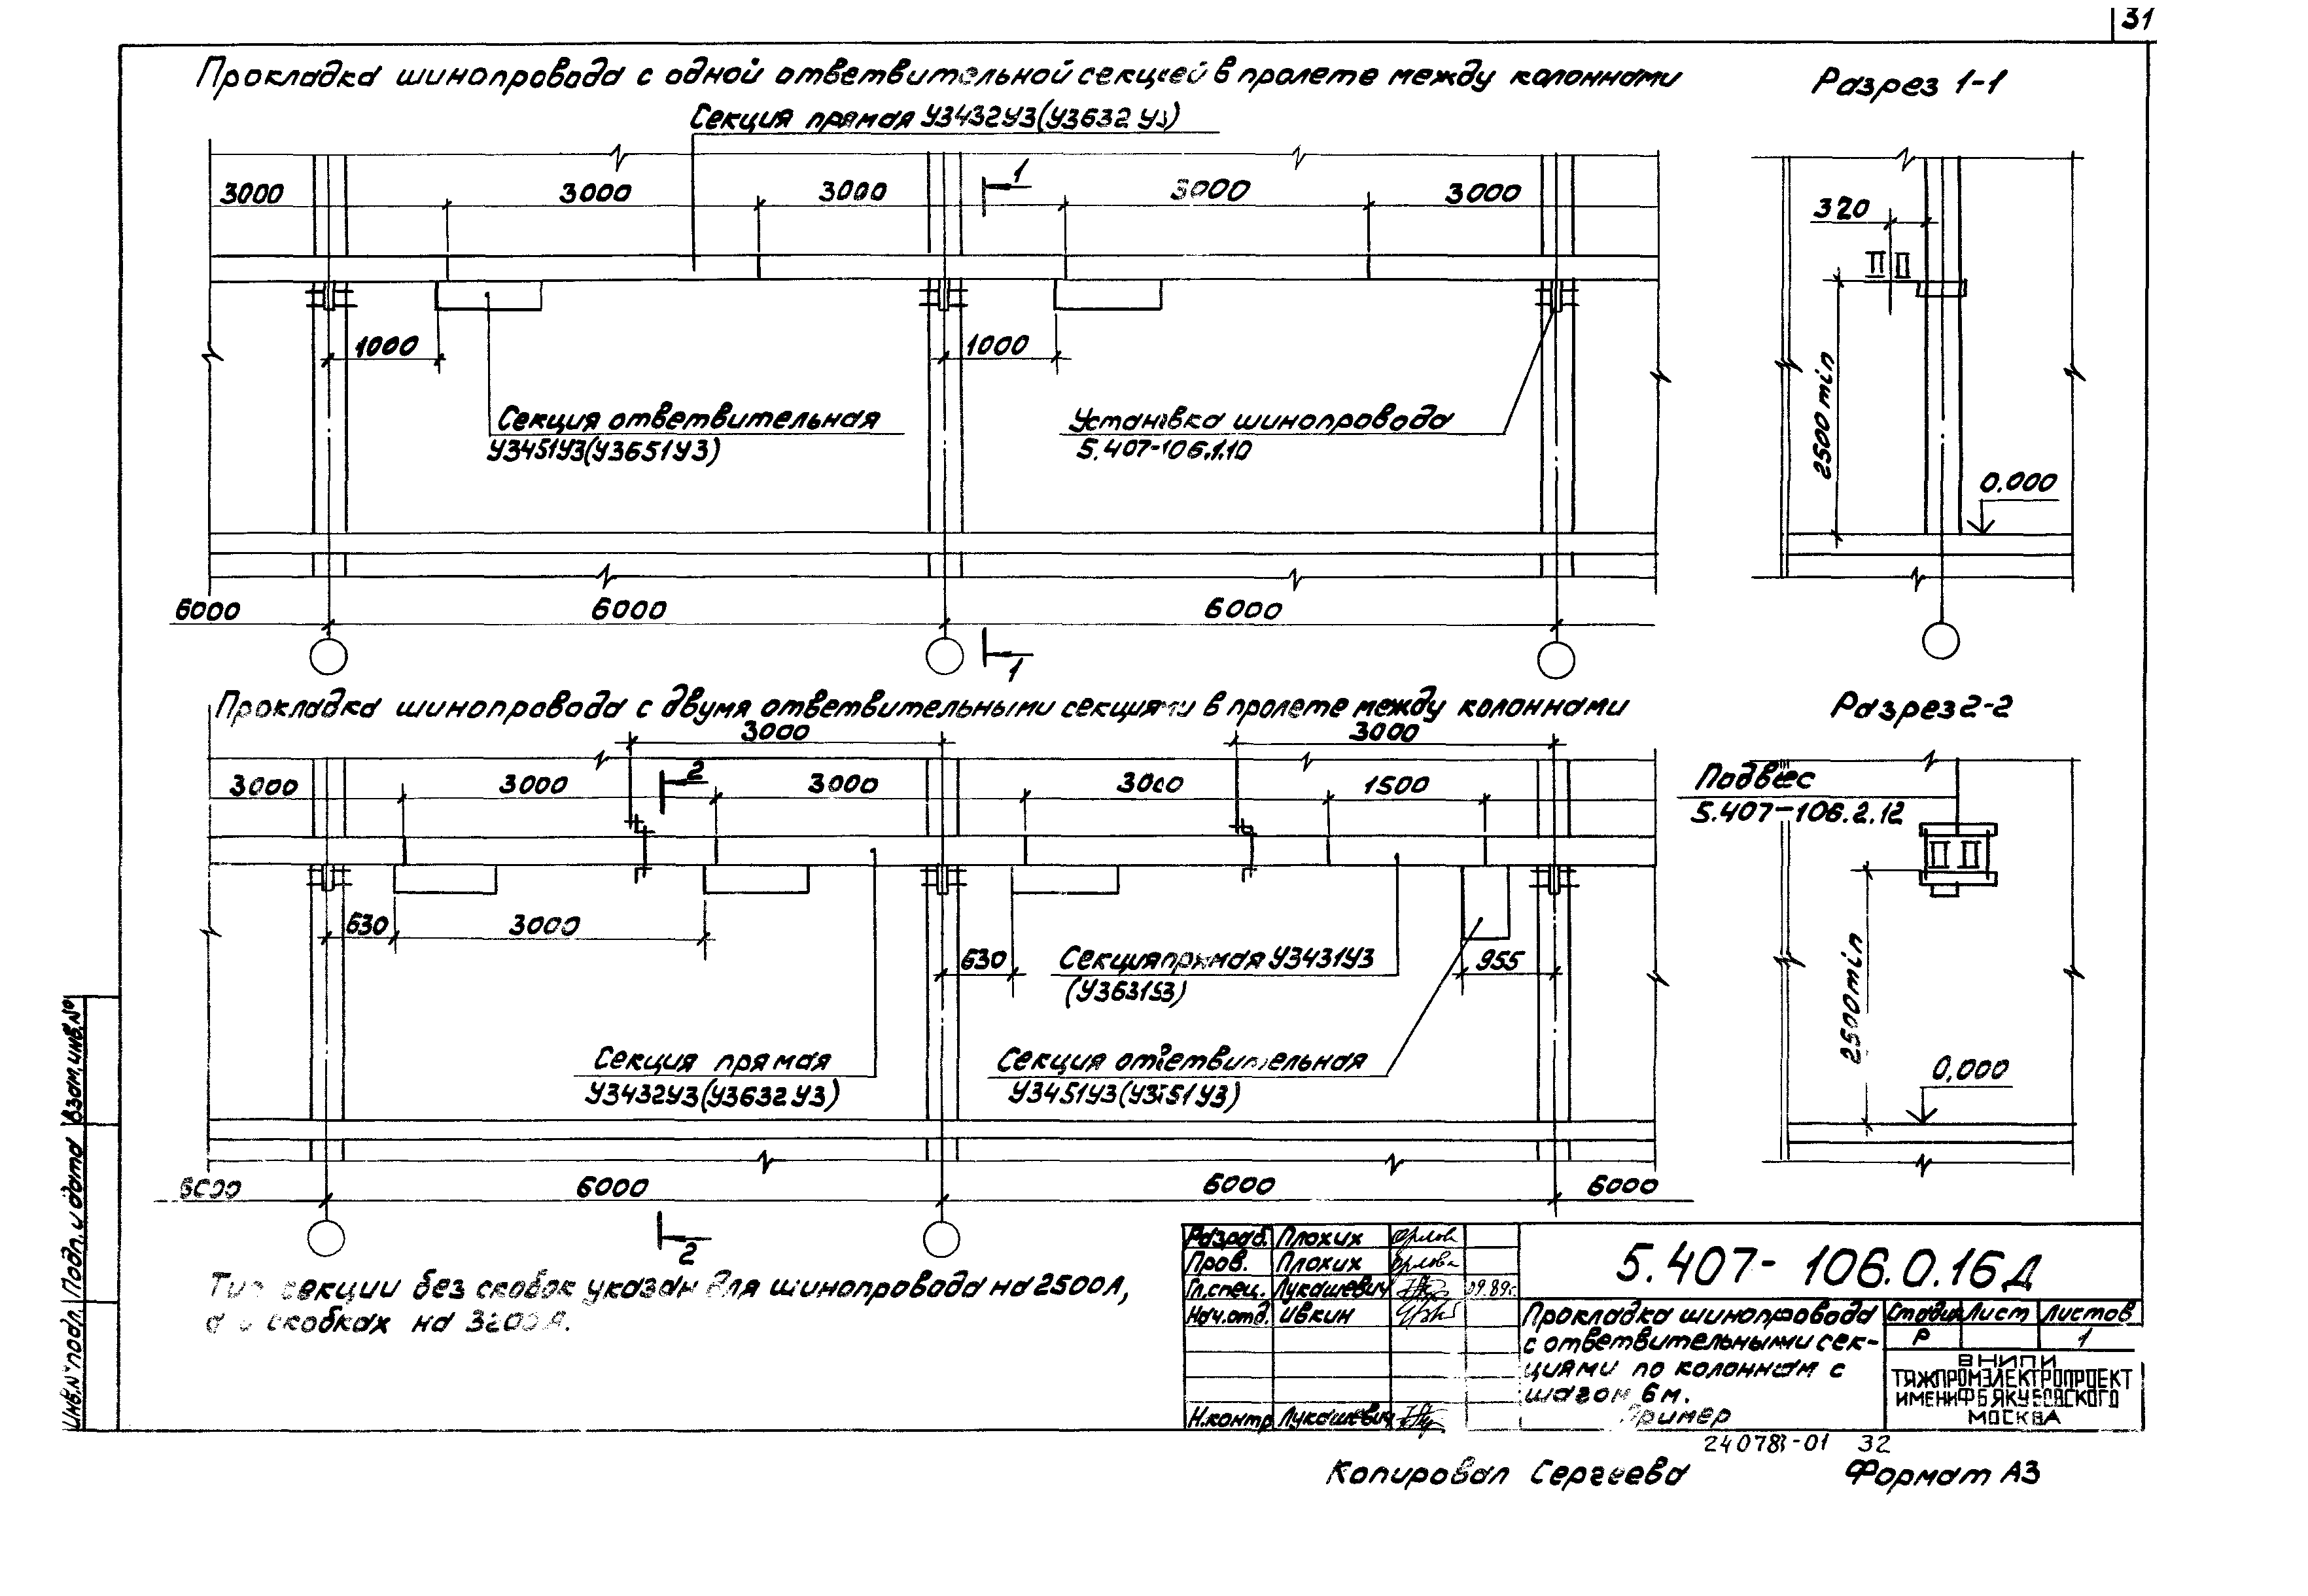 31
Прокладка шинопровода с одной ответвительной секцией в пролете между колоннами
Разрез 1-1
Секция прямая У3432У3(У3632 У3)
3000 3000 3000 3000 3000
1
320
1000 1000
2500 min
Секция ответвительная
У3451У3(У3651У3)
Установка шинопровода
5.407-106.1.10
0.000
6000 6000 6000
1
Прокладка шинопровода с двумя ответвительными секциями в пролете между колоннами
Разрез 2-2
3000 3000
2
3000 3000 3000 3000 1500
Подвес
5.407-106.2.12
630 3000
630
955
Секция прямая У3431У3
(У3631У3)
2500 min
Секция прямая
У3432У3(У3632 У3)
Секция ответвительная
У3451У3
0,000
6000 6000 6000 6000
2
Тип секции без скобок указан для шинопровода на 2500А,
а в скобках на 3200А.
Разраб. Плохих Орлова
Пров. Плохих Орлова
Гл.спец. Лукашевич 09.89г.
Нач.отд. Ивкин
Н.контр Лукашевич
5.407- 106.0.16Д
Прокладка шинопровода
с ответвительными сек-
циями по колоннам с
шагом 6м.
Пример
Стадия Лист Листов
Р 1
ВНИПИ
ТЯЖПРОМЭЛЕКТРОПРОЕКТ
ИМЕНИ Ф Б ЯКУБОВСКОГО
МОСКВА
Инв.N° подл. Подп. и дата Взам.инв.N°
32
Копировал Сергеева Формат А3